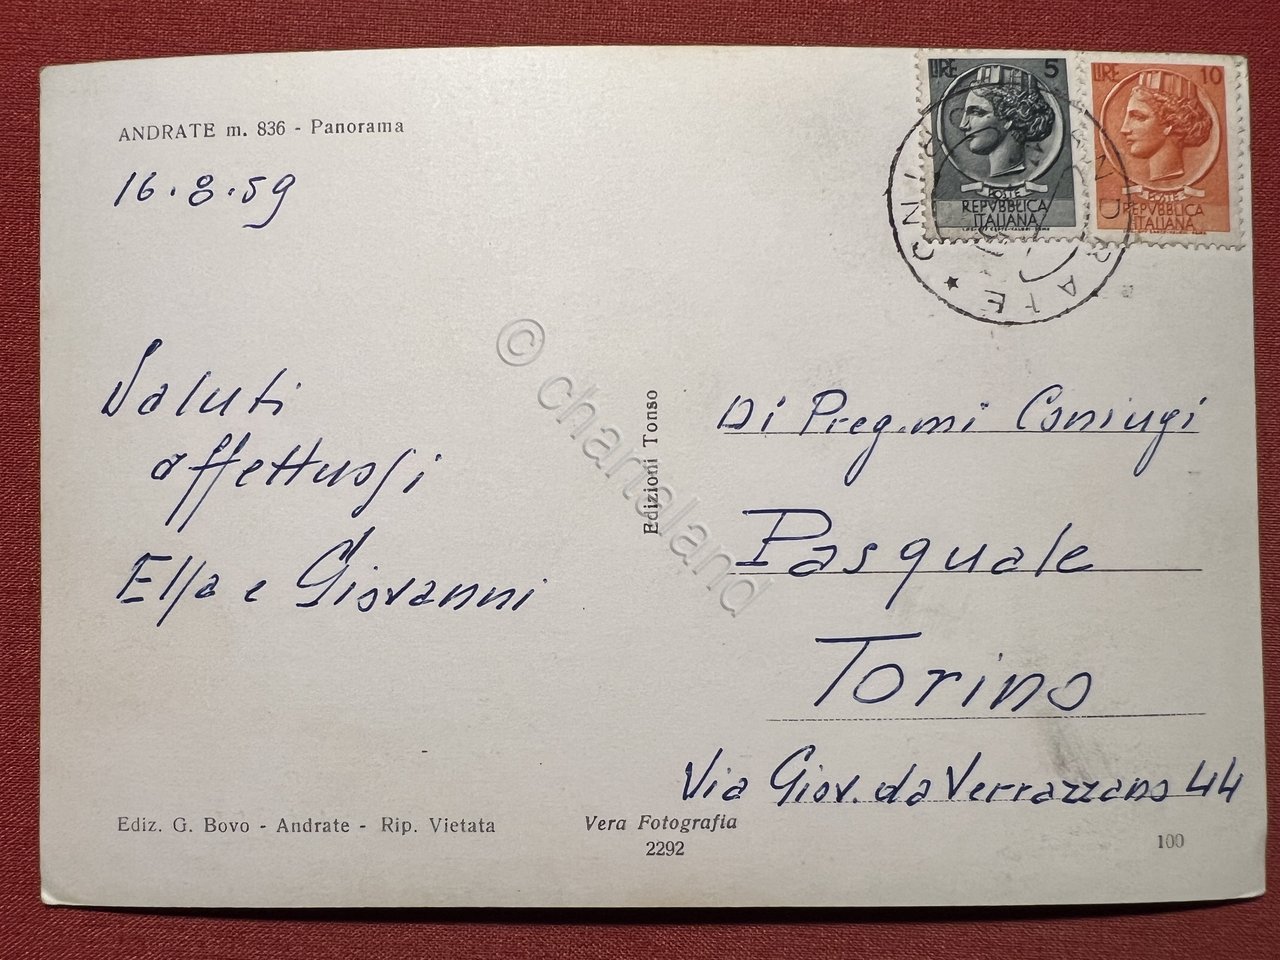 ANDRATE m. 836 - Panorama
16.8.59
Saluti
affettuosi
Ella e Giovanni
Ediz. G. Bovo - Andrate - Rip. Vietata
Edizioni Tonso
Vera Fotografia
2292
LIRE 5
POSTE
REPVBBLICA
ITALIANA
LIRE 10
POSTE
REPVBBLICA
ITALIANA
Pregmi Coniugi
Pasquale
Torino
Via Giov. da Verrazzano 44
100
© chartaland